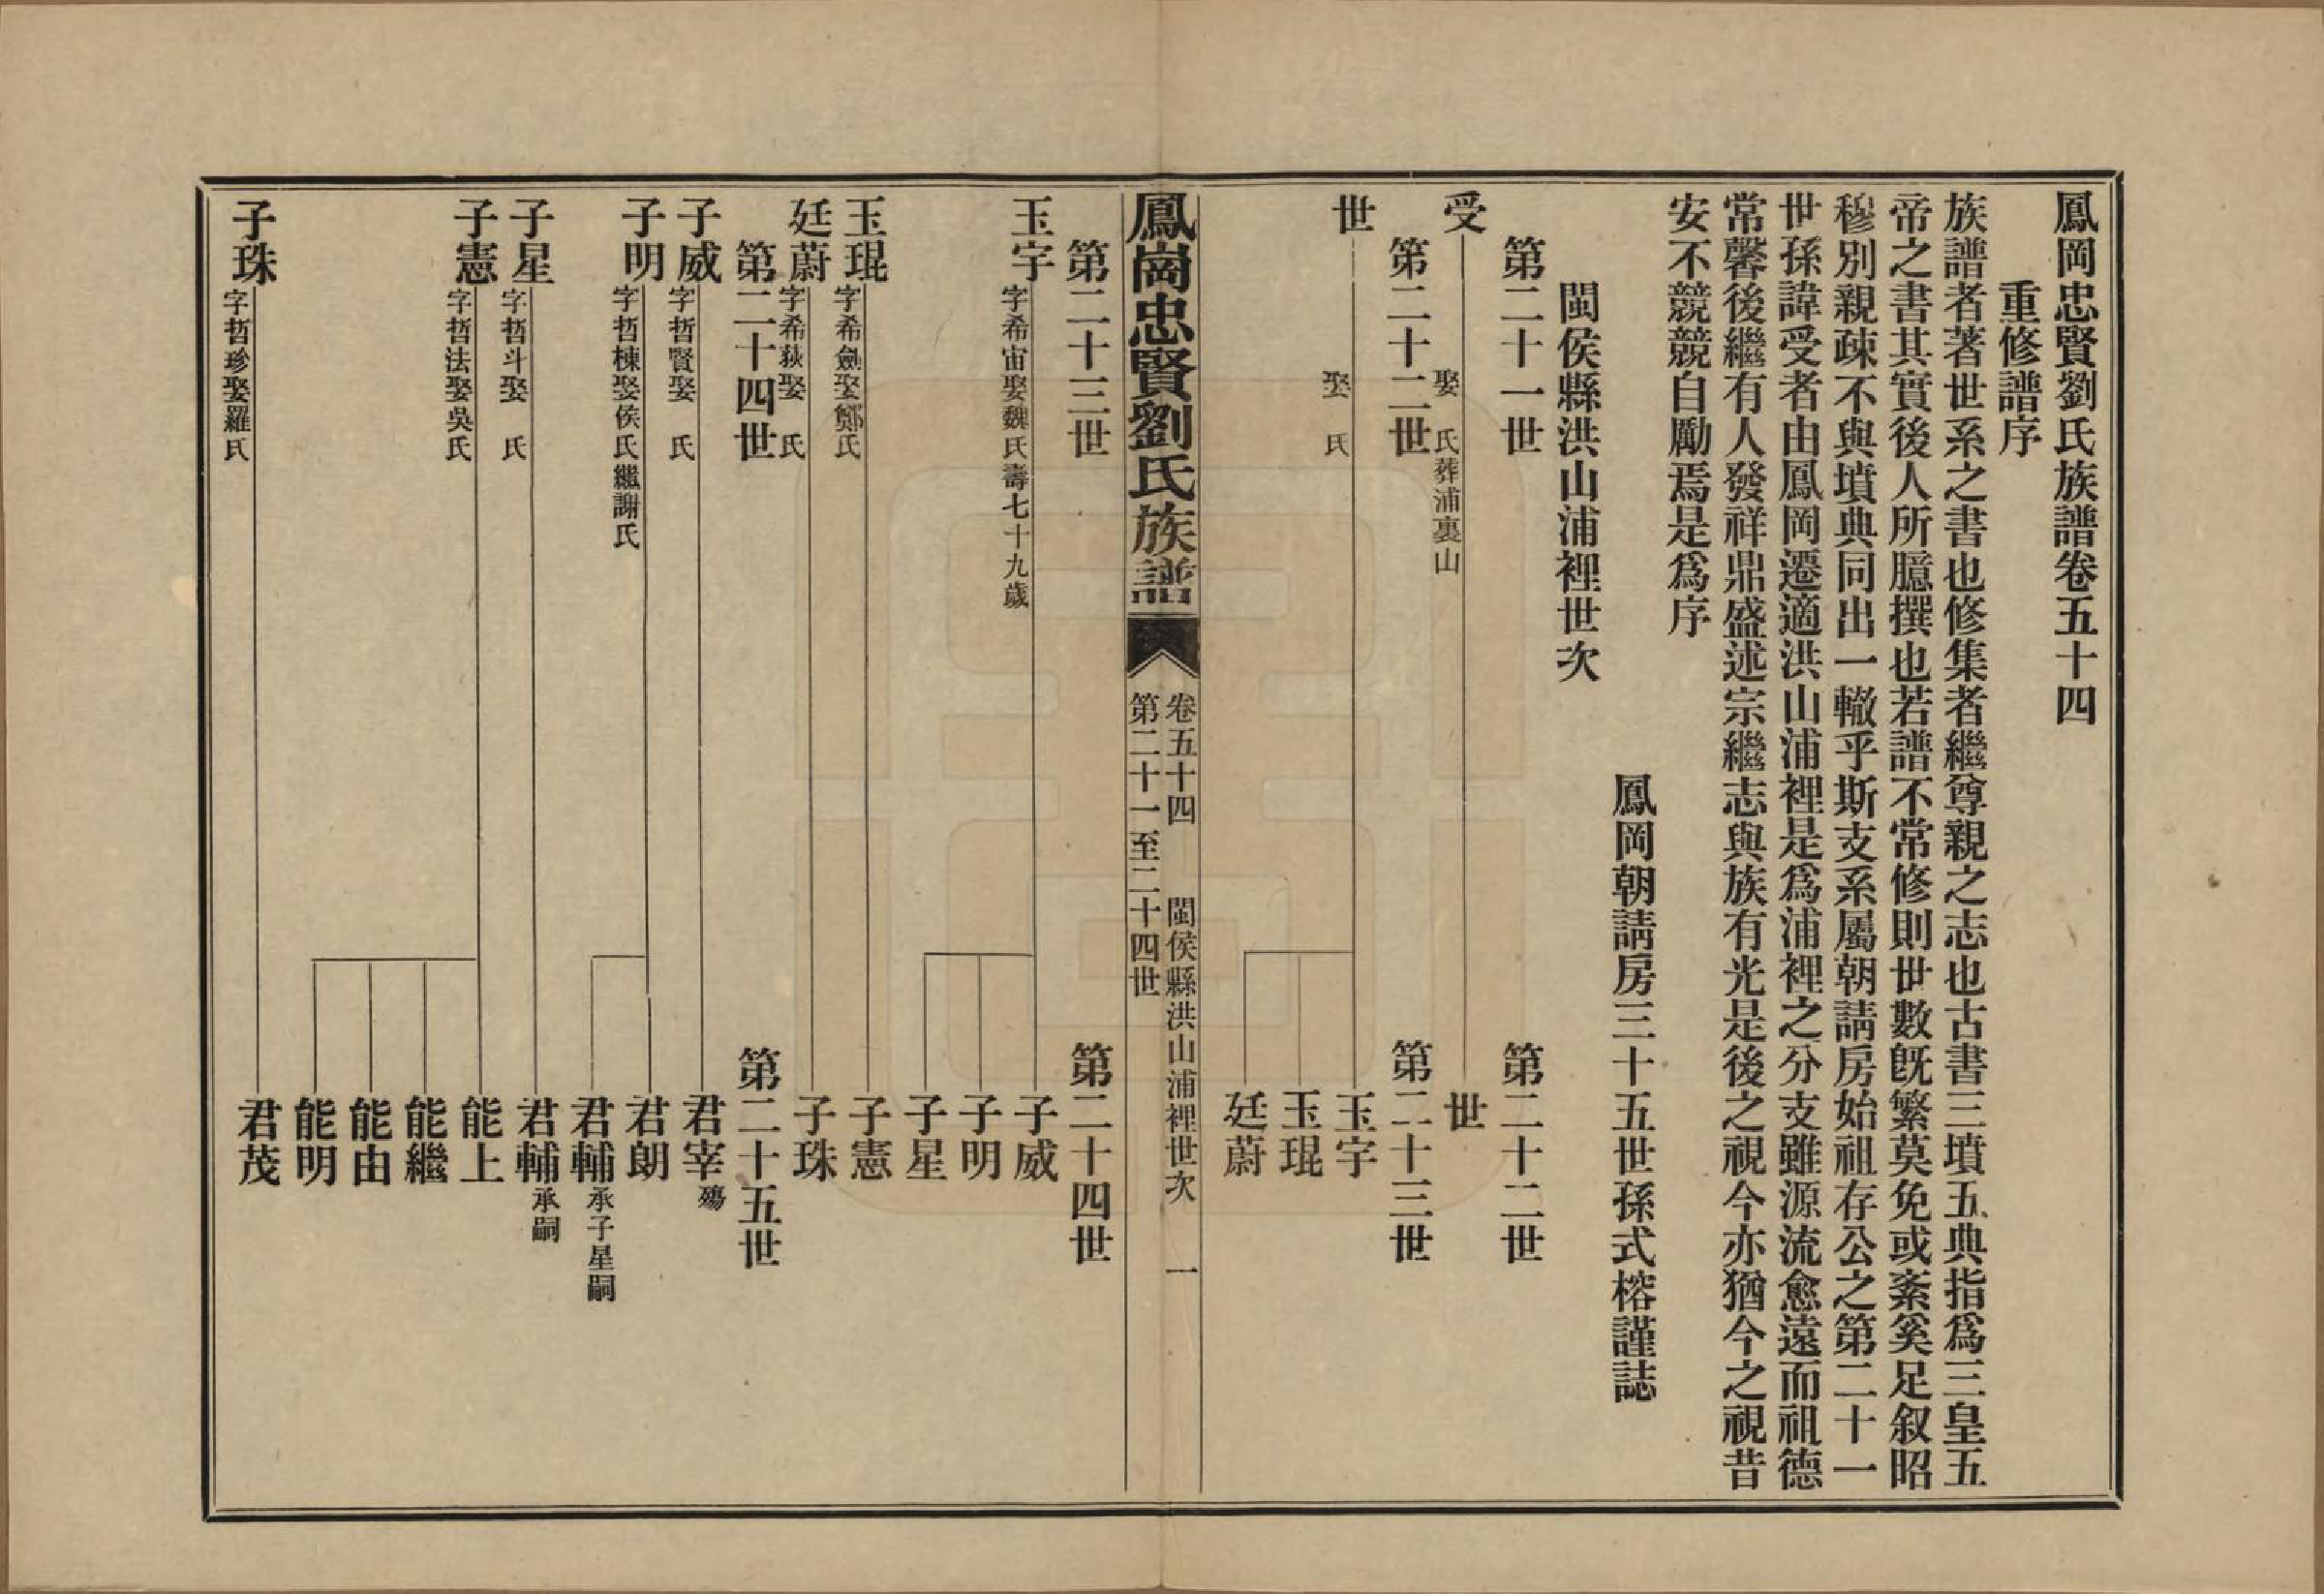 鳳岡忠賢劉氏族譜卷五十四
重修譜序
族譜者著世系之書也修集者繼尊親之志也古書三墳五典指爲三皇五
帝之書其實後人所臆撰也若譜不常修則世數旣繁莫免或紊奚足叙昭
穆別親疎不與墳典同出一轍乎斯支系屬朝請房始祖存公之第二十一
世孫諱受者由鳳岡遷適洪山浦裡是爲浦裡之分支雖源流愈遠而祖德
常馨後繼有人發祥鼎盛述宗繼志與族有光是後之視今亦猶今之視昔
安不競競自勵焉是爲序
鳳岡朝請房三十五世孫式榕謹誌
閩侯縣洪山浦裡世次
第二十一世 第二十二世
受 娶 氏葬浦裏山 世
第二十二世 第二十三世
世 娶 氏 玉宇
玉琨
廷蔚
鳳崗忠賢劉氏族譜
卷五十四 閩侯縣洪山浦裡世次 一
第二十一至二十四世
第二十三世 第二十四世
玉宇 字希宙娶魏氏壽七十九歲 子威
子明
子星
玉琨 字希劍娶鄭氏 子憲
廷蔚 字希荻娶 氏 子珠
第二十四世 第二十五世
子威 字哲賢娶 氏 君宰 殤
子明 字哲棟娶侯氏繼謝氏 君朗
君輔 承子星嗣
子星 字哲斗娶 氏 君輔 承嗣
子憲 字哲法娶吳氏 能上
能繼
能由
能明
子珠 字哲珍娶羅氏 君茂